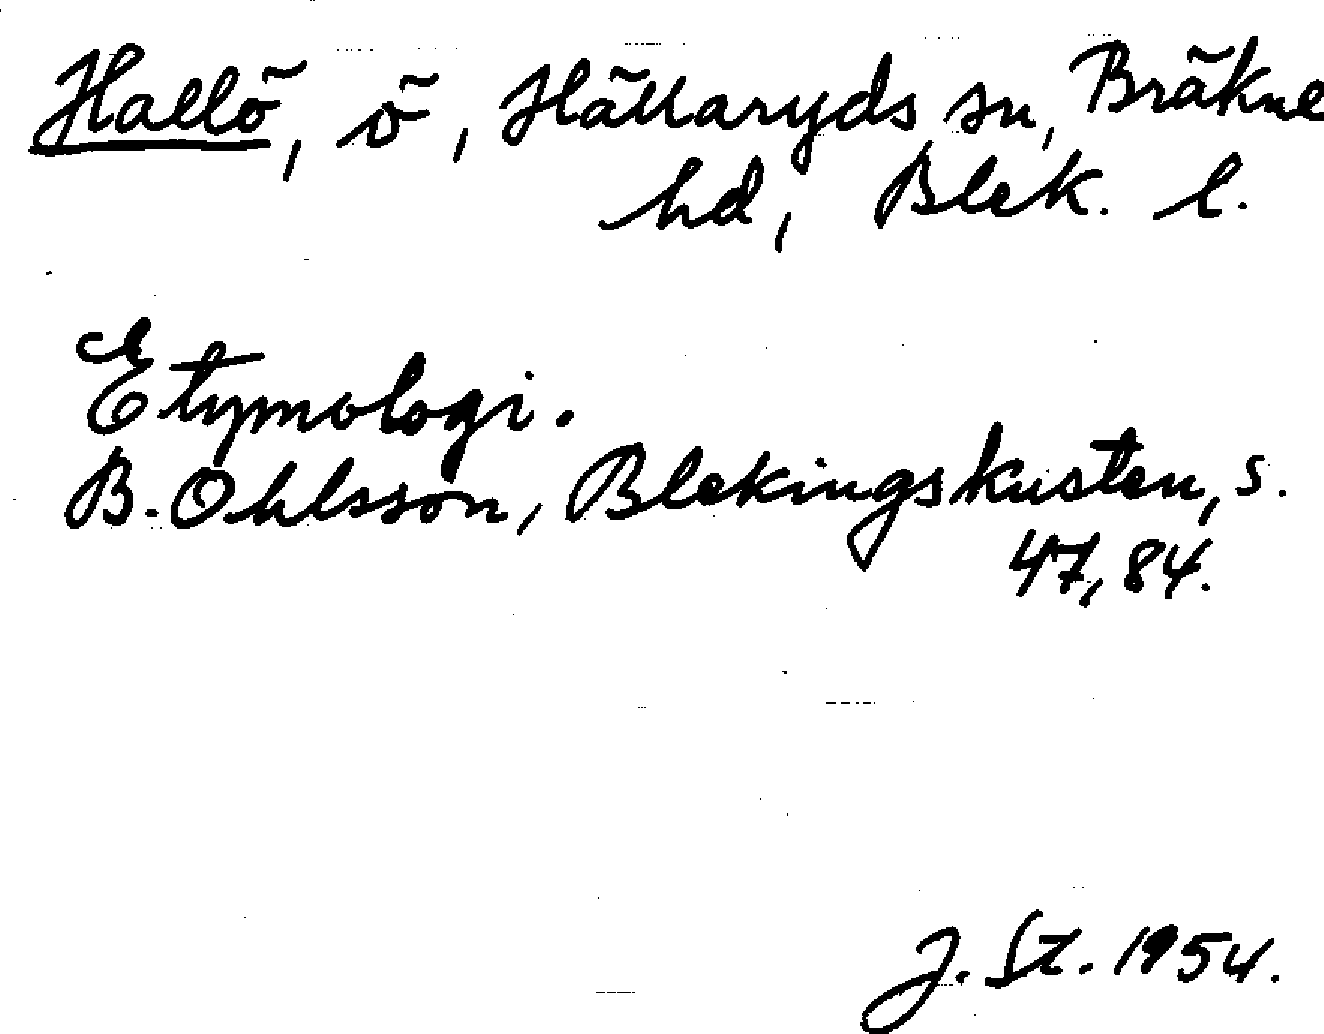 Hallö, ö, Hällaryds sn, Bräkne
hd, Blek. l.
Etymologi.
B. Ohlsson, Blekingskusten, s.
47, 84.
J. Sz. 1954.